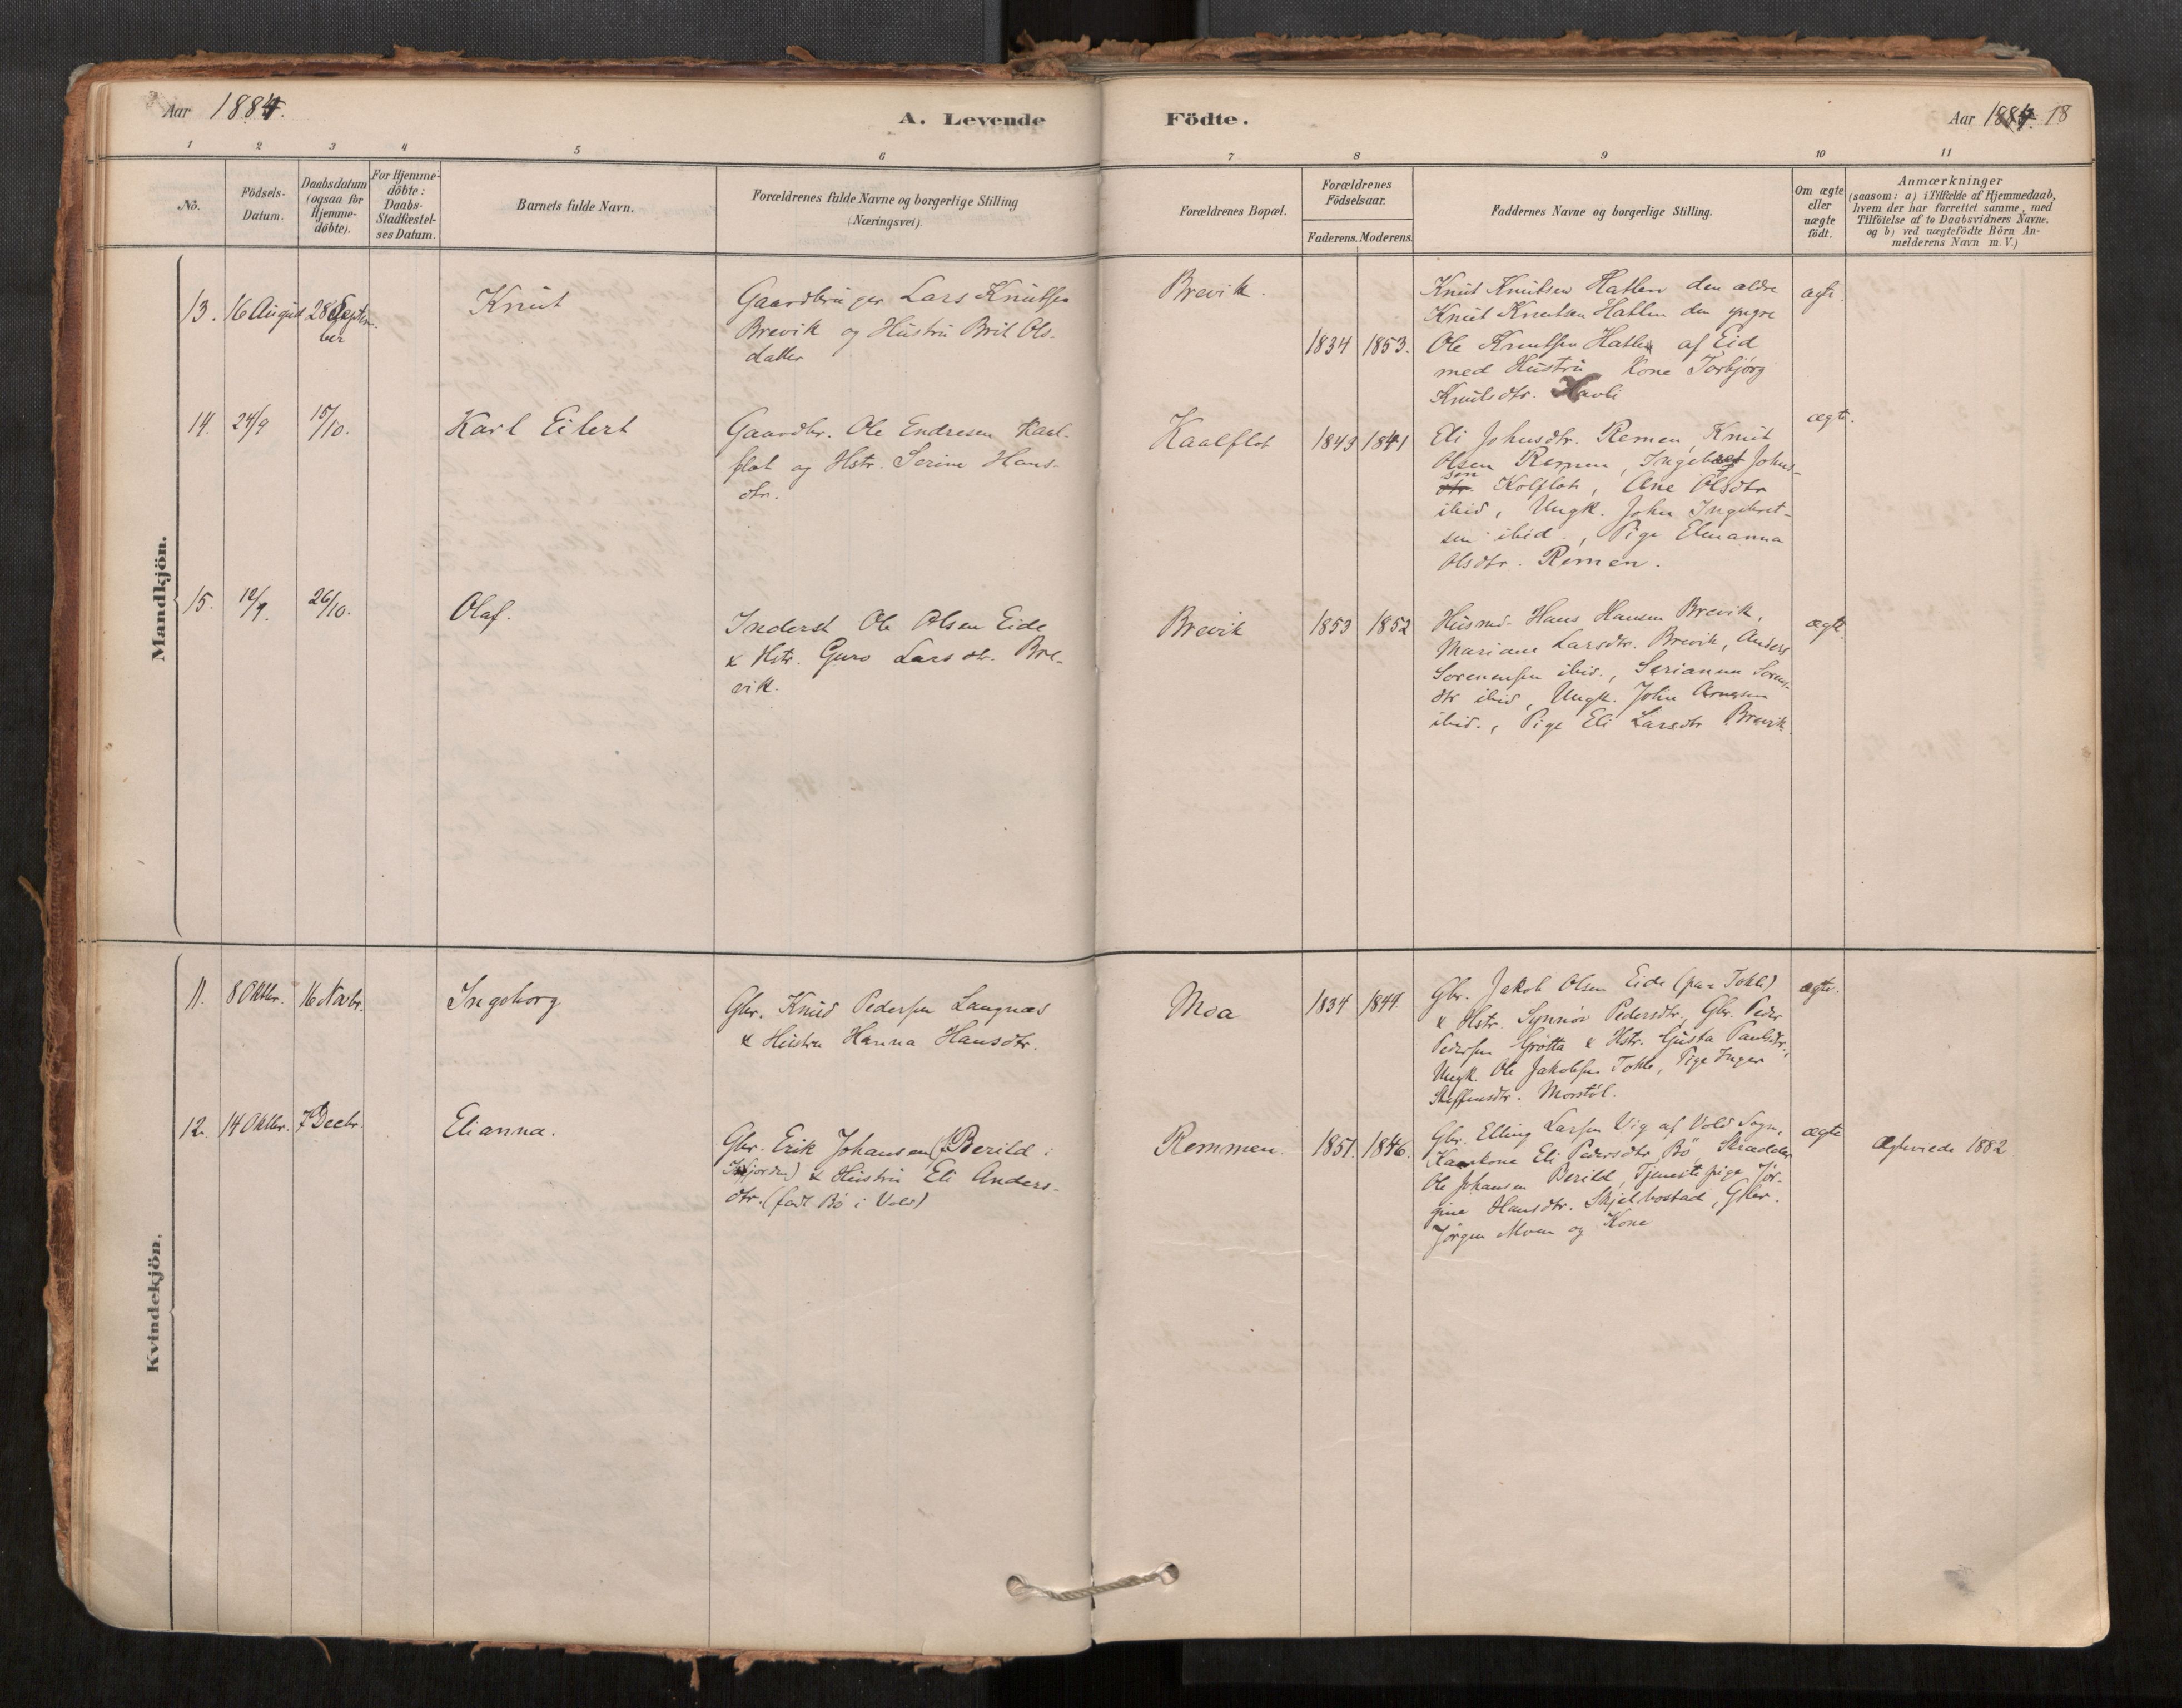 Aar 1884.
A. Levende
Födte.
Aar 1884. 18
1 2 3 4 5 6 7 8 9 10 11
No.
Födsels-
Datum.
Daabsdatum
(ogsaa for
Hjemme-
döbte).
For Hjemme-
döbte:
Daabs-
Stadfæstel-
ses Datum.
Barnets fulde Navn.
Forældrenes fulde Navne og borgerlige Stilling
(Næringsvei).
Forældrenes Bopæl.
Forældrenes
Födselsaar.
Faderens. Moderens.
Faddernes Navne og borgerlige Stilling.
Om ægte
eller
uægte
födt.
Anmærkninger
(saasom: a) i Tilfælde af Hjemmedaab,
hvem der har forrettet samme, med
Tilföielse af to Daabsvidners Navne.
og b) ved uægtefödte Börn An-
melderens Navn m. V.)
Mandkjön.
13. 16 August 28 Septem-
ber
Knut
Gaardbruger Lars Knutsen
Brevik og Hustru Brit Ols-
datter
Brevik.
1834 1853.
Knut Knutsen Hatlen den ældre
Knut Knutsen Hatlen den yngre
Ole Knutsen Hatlen af Eid
med Hustru Kone Torbjørg
Knutsdtr. Havli
ægte.
14. 24/9 15/10.
Karl Eilert
Gaardbr. Ole Endresen Kaal-
flot og Hstr. Serine Hans-
dtr.
Kaalflot
1843 1841
Eli Johnsdtr. Remen, Knut
Olsen Remen, Ingebret Johns-
sen
dtr. Kolflot, Ane Olsdtr
ibid, Ungk. John Ingebret-
sen ibid., Pige Elenanna
Olsdtr. Remen.
ægte.
15. 12/9. 26/10.
Olaf.
Inderst Ole Olsen Eide
& Hstr. Guro Larsdtr. Bre-
vik.
Brevik
1853 1852
Husmd. Hans Hansen Brevik,
Mariane Larsdtr. Brevik, Anders
Sorenensen ibid., Serianna Sorens-
dtr ibid, Ungk. John Arnesen
ibid., Pige Eli Larsdtr Brevik.
ægte.
Kvindekjön.
11. 8 Oktbr. 16 Novbr.
Ingeborg.
Gbr. Knud Pedersen Langnæs
& Hustru Hanna Hansdtr.
Moa
1834 1844.
Gbr. Jakob Olsen Eide (paa Tokle)
& Hstr. Synnöv Pedersdtr., Gbr. Peder
Pedersen Grötta & Hstr. Gusta Paulsdtr.,
Ungk. Ole Jakobsen Tokle, Pige Inger
Steffensdtr. Morstöl.
ægte.
12. 14 Oktbr. 7 Decbr.
Elianna.
Gbr. Erik Johansen (f. Berild i
Isfjorden) & Hustru Eli Anders-
dtr. (født Bö i Vold)
Remmen.
1851. 1846.
Gbr. Elling Larsen Vig af Vold Sogn,
Kaarkone Eli Pedersdtr Bö, Skrædder
Ole Johansen Berild, Tjenestepige Jör-
gine Hansdtr. Skjelbostad, Gbr.
Jörgen Moen og Kone
ægte
Ægteviede 1882.